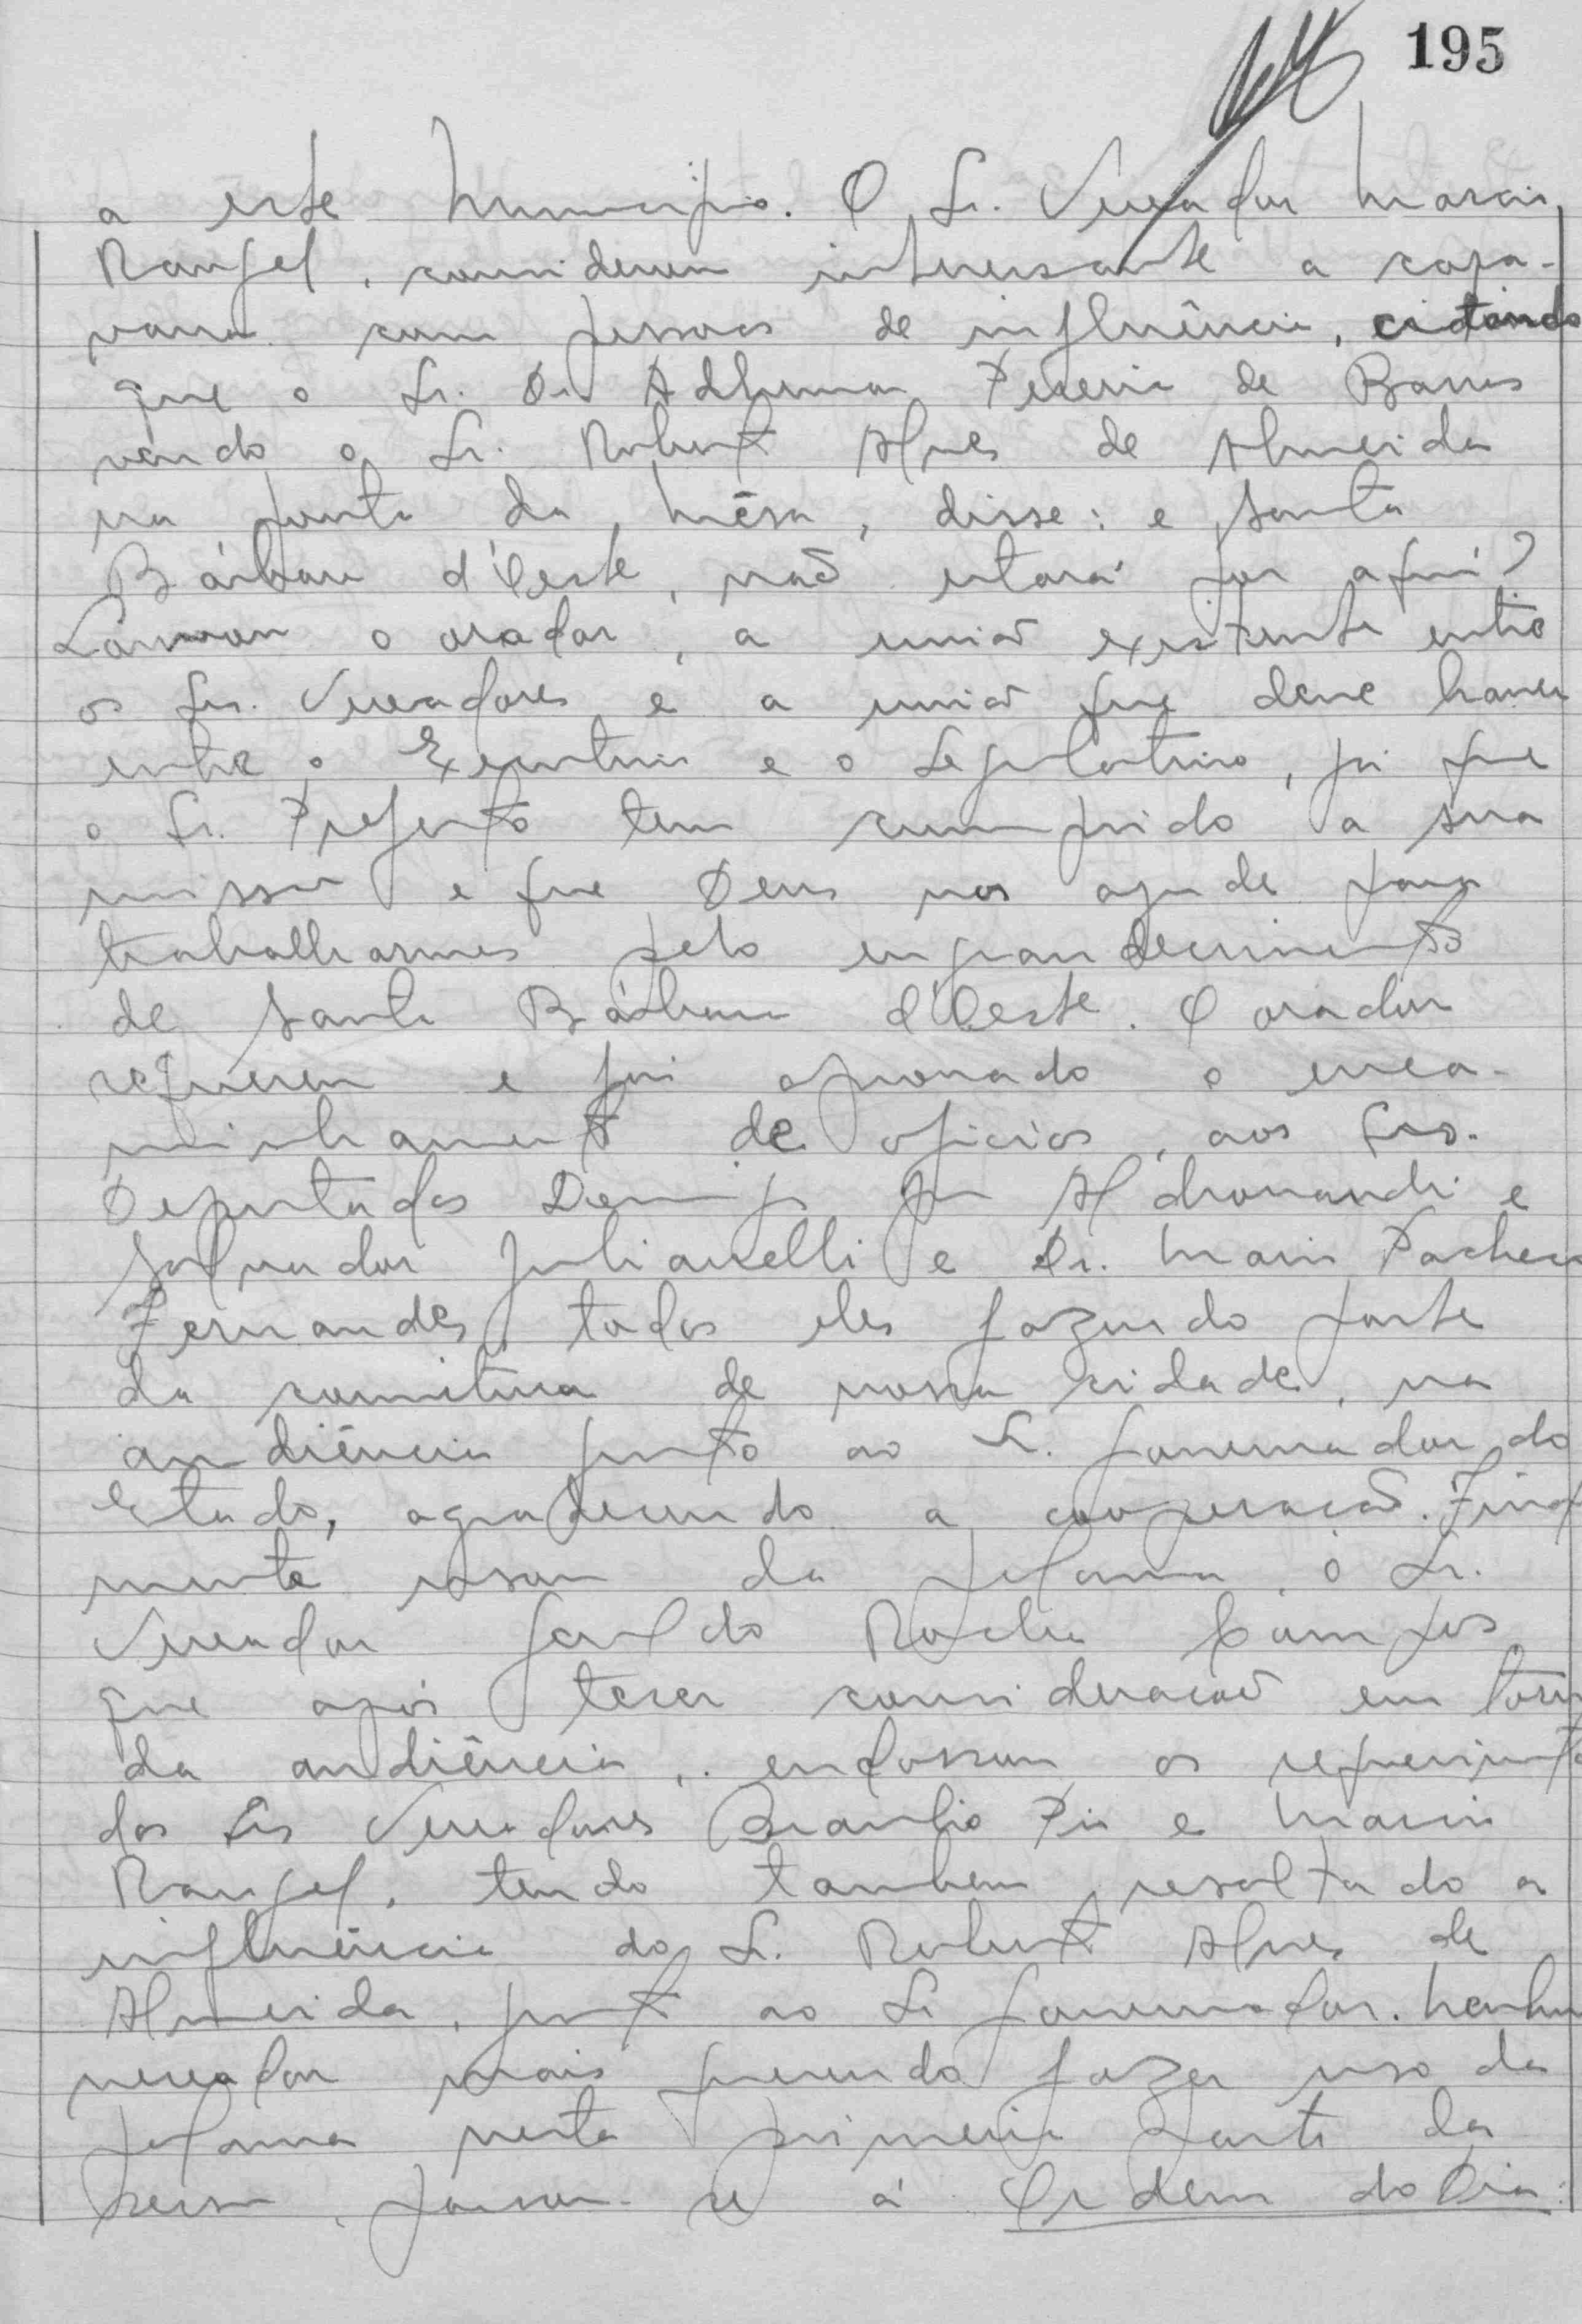 195
a este Municipio. O Sr. Vereador Marcio
Rangel, considerou interessante a cara-
vana com pessoas de influência, citando
que o Sr. Dr Adhemar Pereira de Barros
vendo o Sr. Robert Alves de Almeida
na ponta da mêsa, disse: e Santa
Bárbara d'Oeste, não estará por aqui?
Louvou o orador, a união existente entre
os Srs. Vereadores e a união que deve haver
entre o Executivo e o Legislativo, pois que
o Sr. Prefeito tem cumprido a sua
missão e que Deus nos ajude para
trabalharmos pelo engrandecimento
de Santa Bárbara d'Oeste. O orador
requereu e foi aprovado o enca-
minhamento de oficios, aos Srs.
Deputados Aldrovandi e
Salvador Julianelli e Dr. Mario Pacheco
Fernandes, todos eles fazendo parte
da comitiva de nossa cidade, na
audiência junto ao Sr. Governador do
Estado, agradecendo a cooperação. Final
mente usou da palavra, o Sr.
Vereador Geraldo Rocha Campos
que após tecer consideração em torno
da audiência, endossou os requerimentos
dos Srs Vereadores Braulio Pio e Marcio
Rangel, tendo tambem resaltado a
influência do Sr. Robert Alves de
Almeida, junto ao Sr Governador. Nenhum
vereador mais querendo fazer uso da
palavra nesta primeira parte da
sessão, passou-se á Ordem do Dia: